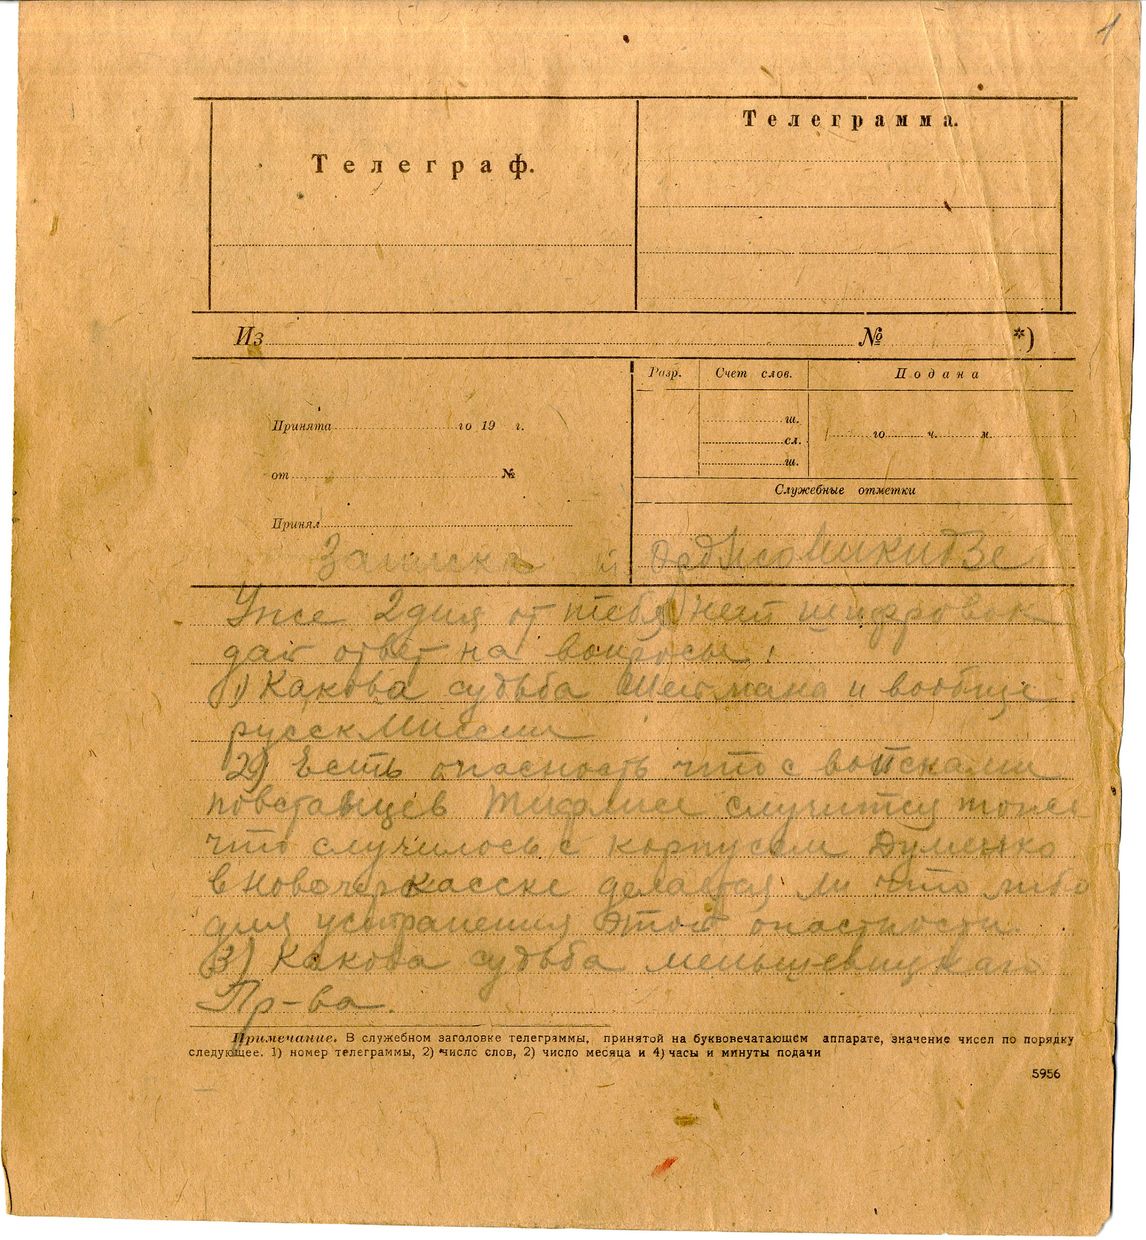 1
Телеграф.
Телеграмма.
Из № *)
Принята го 19 г.
от №
Принял
Разр. Счет слов. Подана
ш.
сл.
ш.
го ч. м.
Служебные отметки
Записка Орджоникидзе
Уже 2 дня от тебя нет шифровок
дай ответ на вопросы:
1) Какова судьба Шеймана и вообще
русск миссии
2) Есть опасность что с войсками
повстанцев Тифлисе случится тоже
что случилось с корпусом Думенко
в Новочеркасске делается ли что либо
для устранения этой опастности.
3) Какова судьба меньшевитскаго
Пр-ва.
Примечание. В служебном заголовке телеграммы, принятой на буквовечатающем аппарате, значение чисел по порядку
следующее. 1) номер телеграммы, 2) число слов, 2) число месяца и 4) часы и минуты подачи
5956